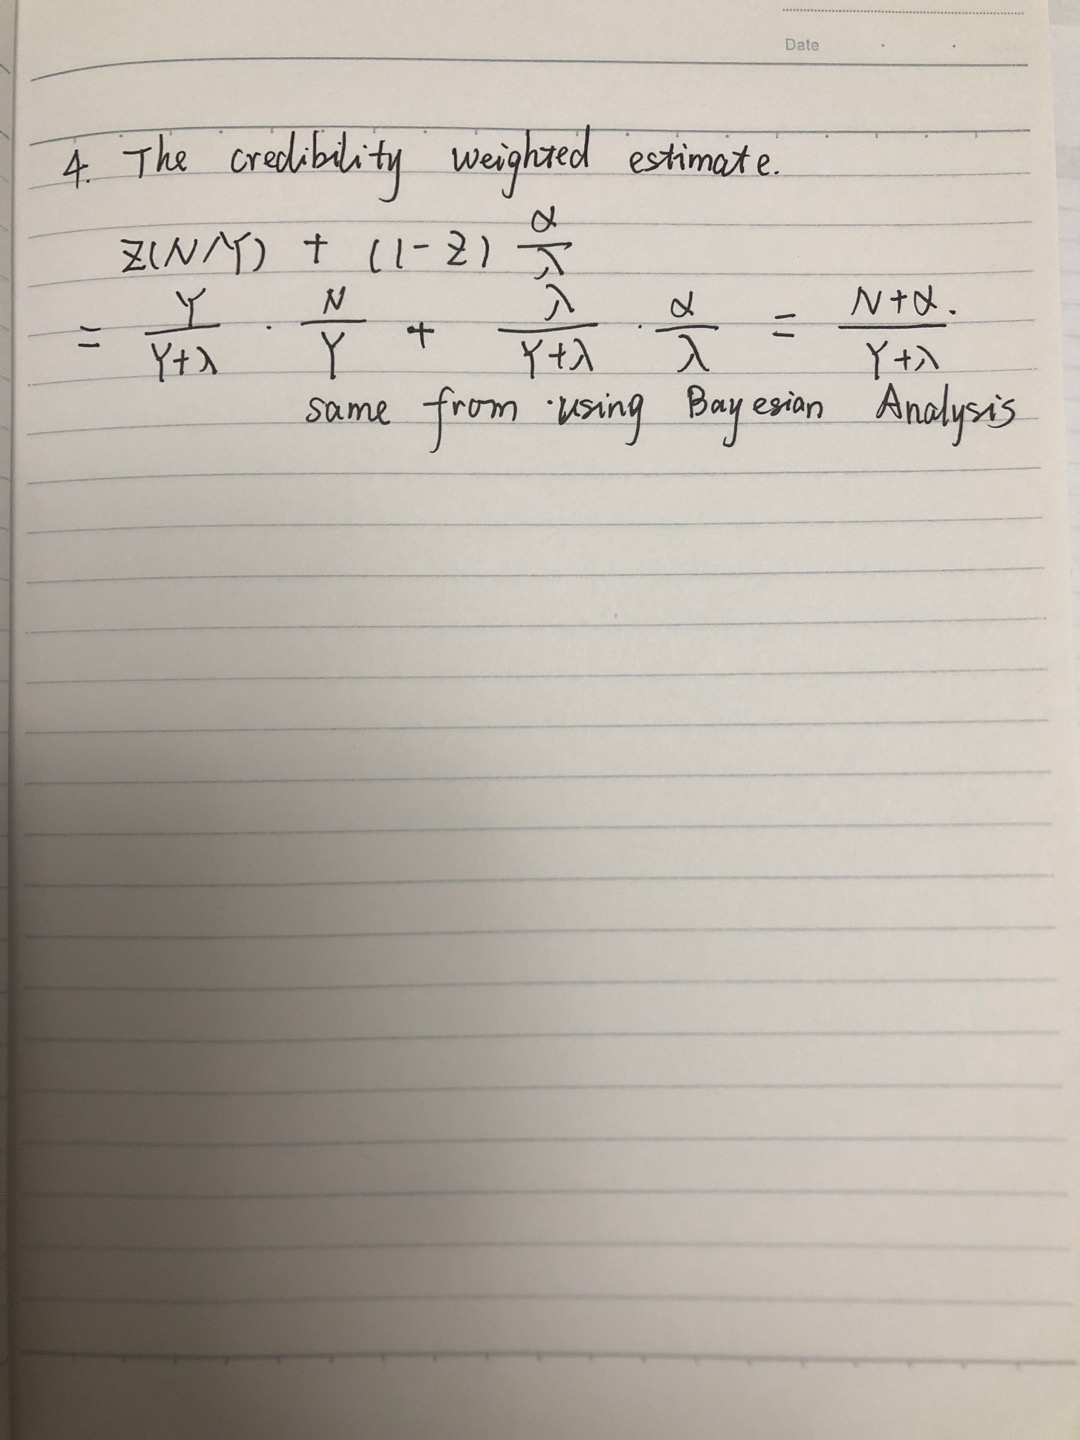 Date
4. The credibility weighted estimate.
Z(N/Y) + (1-Z) α/λ
= Y/(Y+λ) · N/Y + λ/(Y+λ) · α/λ = (N+α)/(Y+λ).
same from using Bayesian Analysis